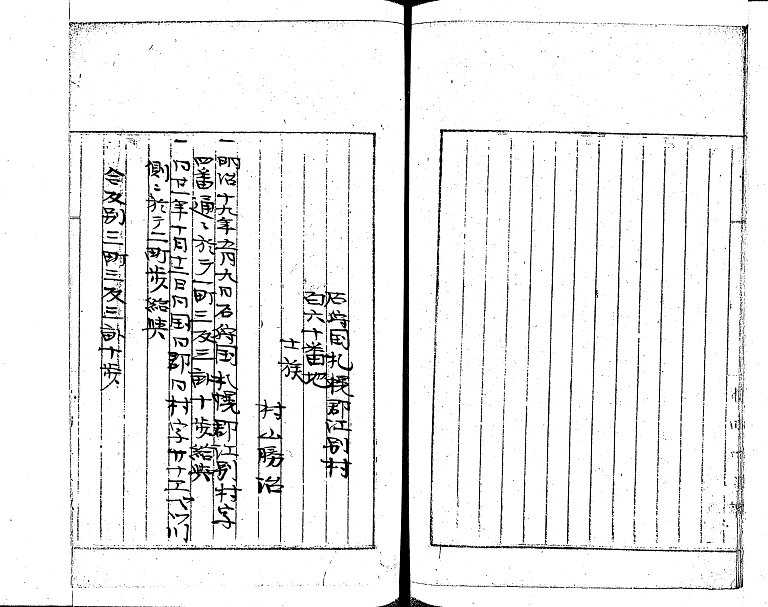 石狩国札幌郡江別村
百六十番地
士族
村山勝治
一明治十九年五月九日石狩国札幌郡江別村字
四番通ニ於テ一町三反三畝十歩給與
一同廿一年十月十二日同国同郡同村字
側ニ於テ二町歩給與
合反別三町三反三畝十歩